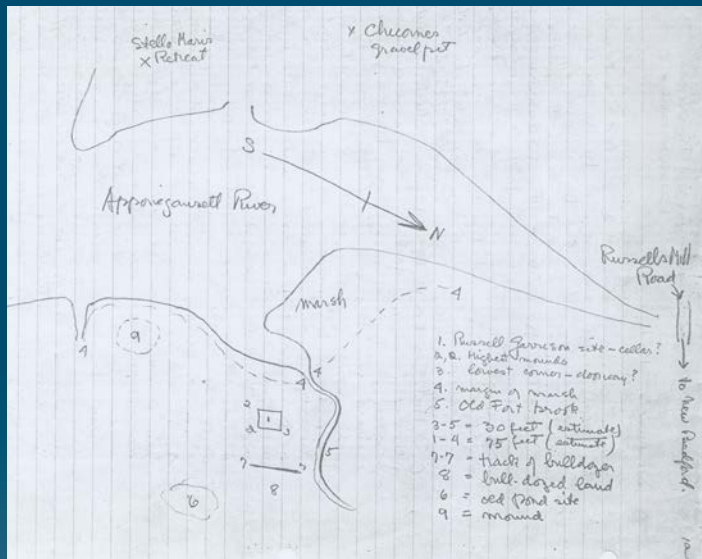 Stella Maris
x Retreat
x Chicomes
gravel pit
S
Apponegansett River
N
Russells Mill
Road
marsh
4
to New Bedford.
4
9
4
4
1. Russell Garrison site - cellar?
2,2. Highest mounds
3. lowest corner - doorway?
4. margin of marsh
5. Old Fort brook
3-5 = 30 feet (estimate)
1-4 = 75 feet (estimate)
7-7 = track of bulldozer
8 = bull-dozed land
6 = old pond site
9 = mound
2
1
2
3
5
7
7
8
6